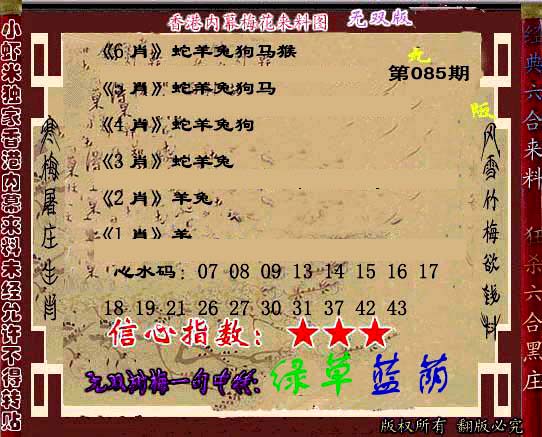 香港内幕梅花来料图 无双版
《6 肖》蛇羊兔狗马猴
第085期
《5 肖》蛇羊兔狗马
《4 肖》蛇羊兔狗
《3 肖》蛇羊兔
《2 肖》羊兔
《1 肖》羊
心水码：07 08 09 13 14 15 16 17
18 19 21 26 27 30 31 37 42 43
信心指数：★★★
无双刘梅一句中特：绿草蓝荫
版权所有 翻版必究
小虾米独家香港内幕来料未经允许不得转贴
寒梅屠庄生肖
无
版
风雪竹梅欲钱料
经典六合来料
狂杀六合黑庄